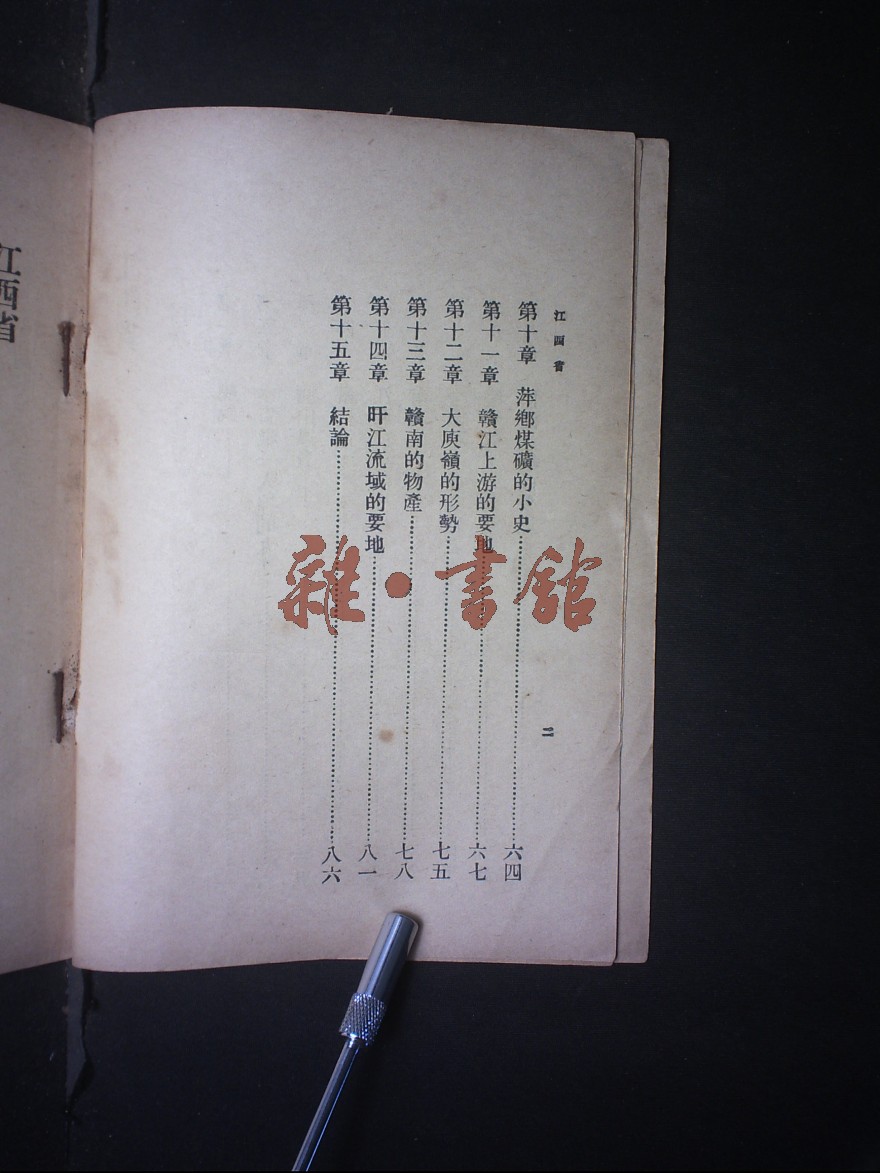 江西省
二
第十章 萍鄉煤礦的小史⋯⋯六四
第十一章 贛江上游的要地⋯⋯六七
第十二章 大庾嶺的形勢⋯⋯七五
第十三章 贛南的物產⋯⋯七八
第十四章 旴江流域的要地⋯⋯八一
第十五章 結論⋯⋯八六
江西省
雜·書館